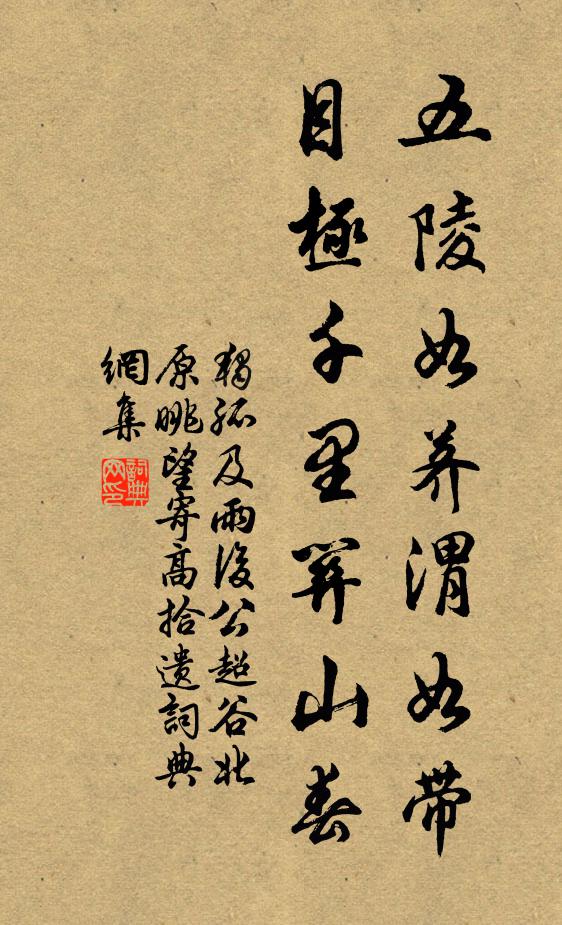 五陵如荠渭如帶
目極千里關山春
獨孤及雨後公超谷北
原眺望寄高拾遺詞典
網集
詞典
网印